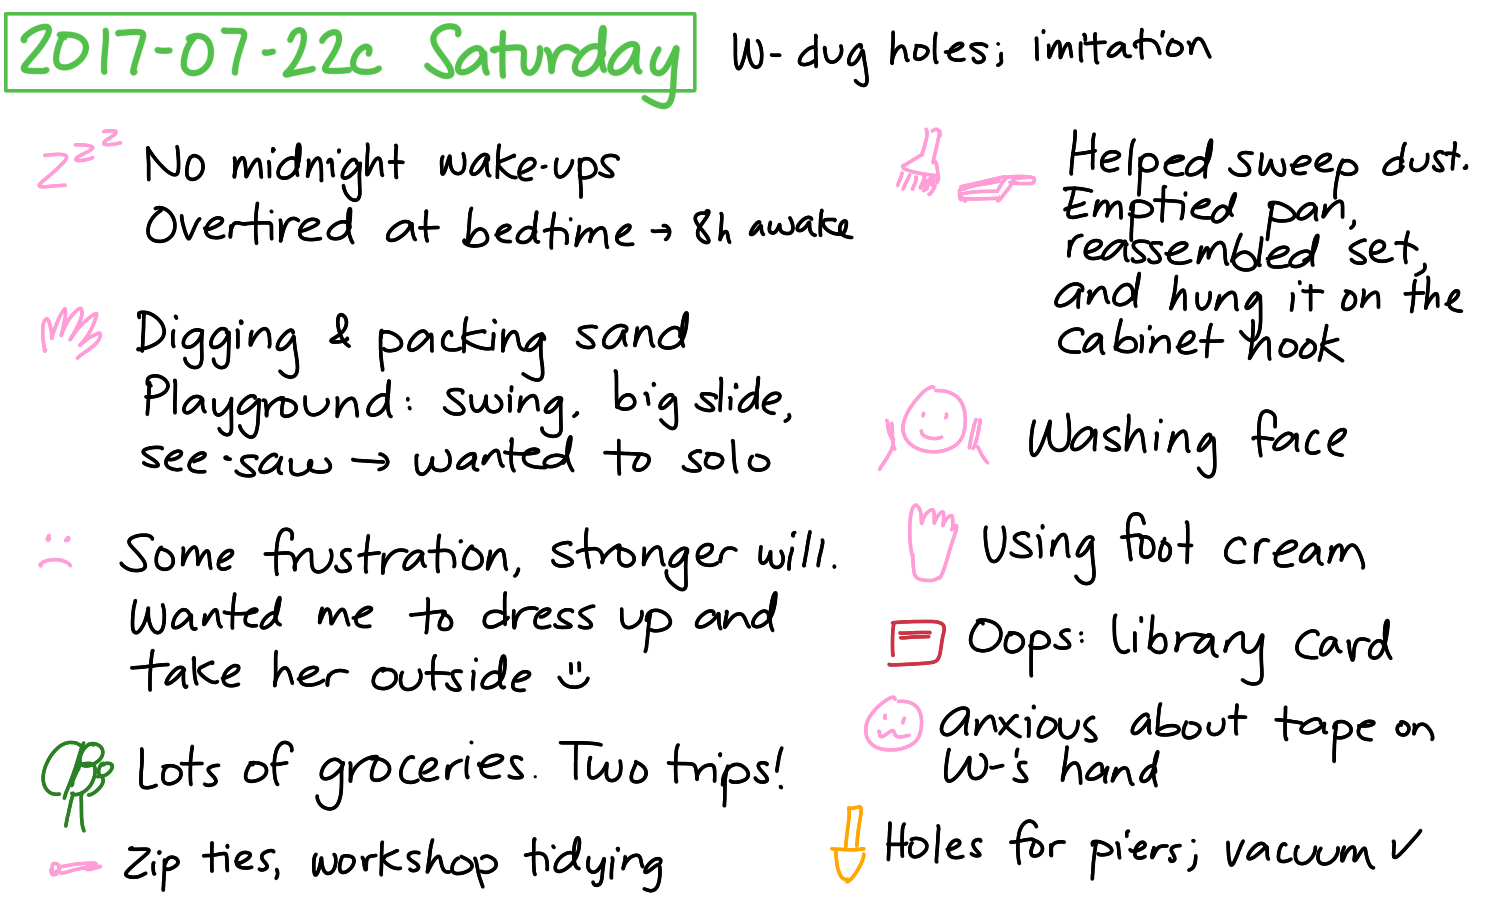 2017-07-22c Saturday
W- dug holes; imitation
zzz
No midnight wake-ups
Overtired at bedtime → 8h awake
Digging & packing sand
Playground: swing, big slide,
see-saw → wanted to solo
Some frustration, stronger will.
Wanted me to dress up and
take her outside :)
Lots of groceries. Two trips!
Zip ties, workshop tidying
Helped sweep dust.
Emptied pan,
reassembled set,
and hung it on the
cabinet hook
Washing face
Using foot cream
Oops: library card
anxious about tape on
W-'s hand
Holes for piers; vacuum ✓